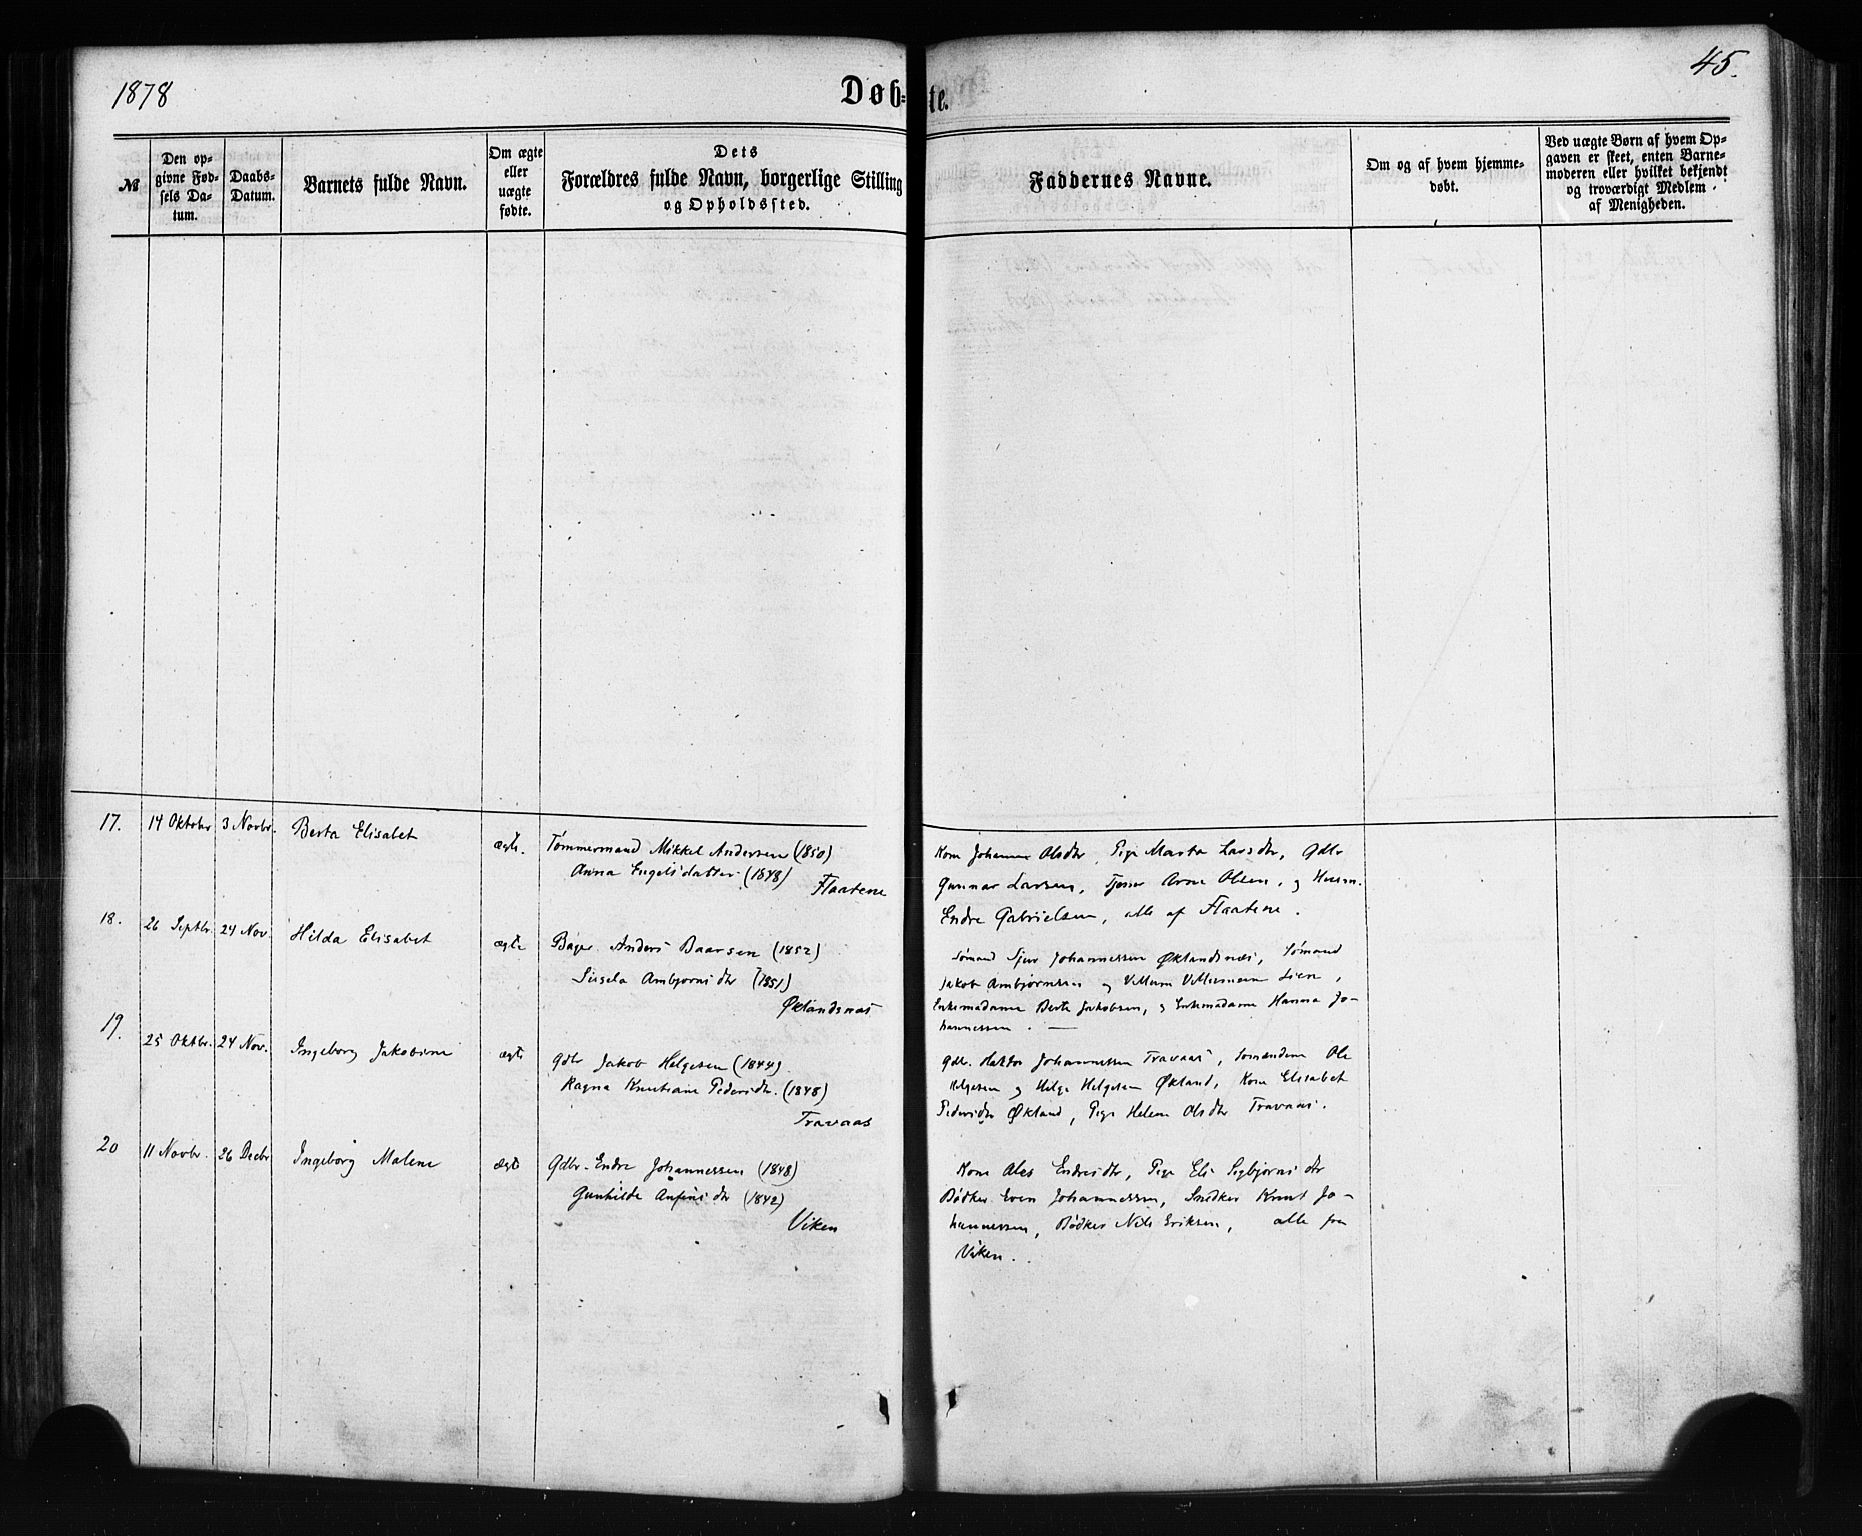 1878
Døb=te.
45.
№
Den op-
givne Fød-
sels Da-
tum.
Daabs-
Datum.
Barnets fulde Navn.
Om ægte
eller
uægte
fødte.
Dets
Forældres fulde Navn, borgerlige Stilling
og Opholdssted.
Faddernes Navne.
Om og af hvem hjemme-
døbt.
Ved uægte Børn af hvem Op-
gaven er skeet, enten Barne-
moderen eller hvilket bekjendt
og troværdigt Medlem
af Menigheden.
17. 14 Oktober 3 Novbr. Berta Elisabet ægte. Tømmermand Mikkel Andersen (1850)
Anna Engelsdatter (1848)
Flaatene
Kone Johanna Olsdtr, Pige Marta Larsdtr, Gdbr
Gunnar Larsen, Tjener Arne Olsen, og Husm.
Endre Gabrielsen, alle af Flaatene.
18. 26 Septbr. 24 Nov. Hilda Elisabet ægte Bager Anders Baarsen (1852)
Sissela Ambjørnsdtr (1851)
Øklandsnæs
Sømand Sjur Johannessen Øklandsnæs, Sømand
Jakob Ambjørnsen og Villum Villumsen Lien,
Enkemadame Berte Jakobsen, og Enkemadame Hanna Jo-
hannessen.
19. 25 Oktbr. 24 Nov. Ingeborg Jakobine ægte Gdbr Jakob Helgesen (1844)
Ragna Knutiane Pedersdtr. (1848)
Travaas
Gdbr. Haktor Johannessen Travaas, Sømændene Ole
Helgesen og Helge Helgesen Økland, Kone Elisabet
Pedersdtr Økland, Pige Helene Olsdtr Travaas.
20 11 Novbr. 26 Decbr Ingeborg Malene ægte Gdbr. Endre Johannessen (1848)
Gunhilde Anfinsdtr (1842)
Viken
Kone Ales Endresdtr, Pige Eli Sigbjørnsdtr
Bødker Even Johannessen, Snedker Knut Jo-
hannessen, Bødker Nils Eriksen, alle fra
Viken.